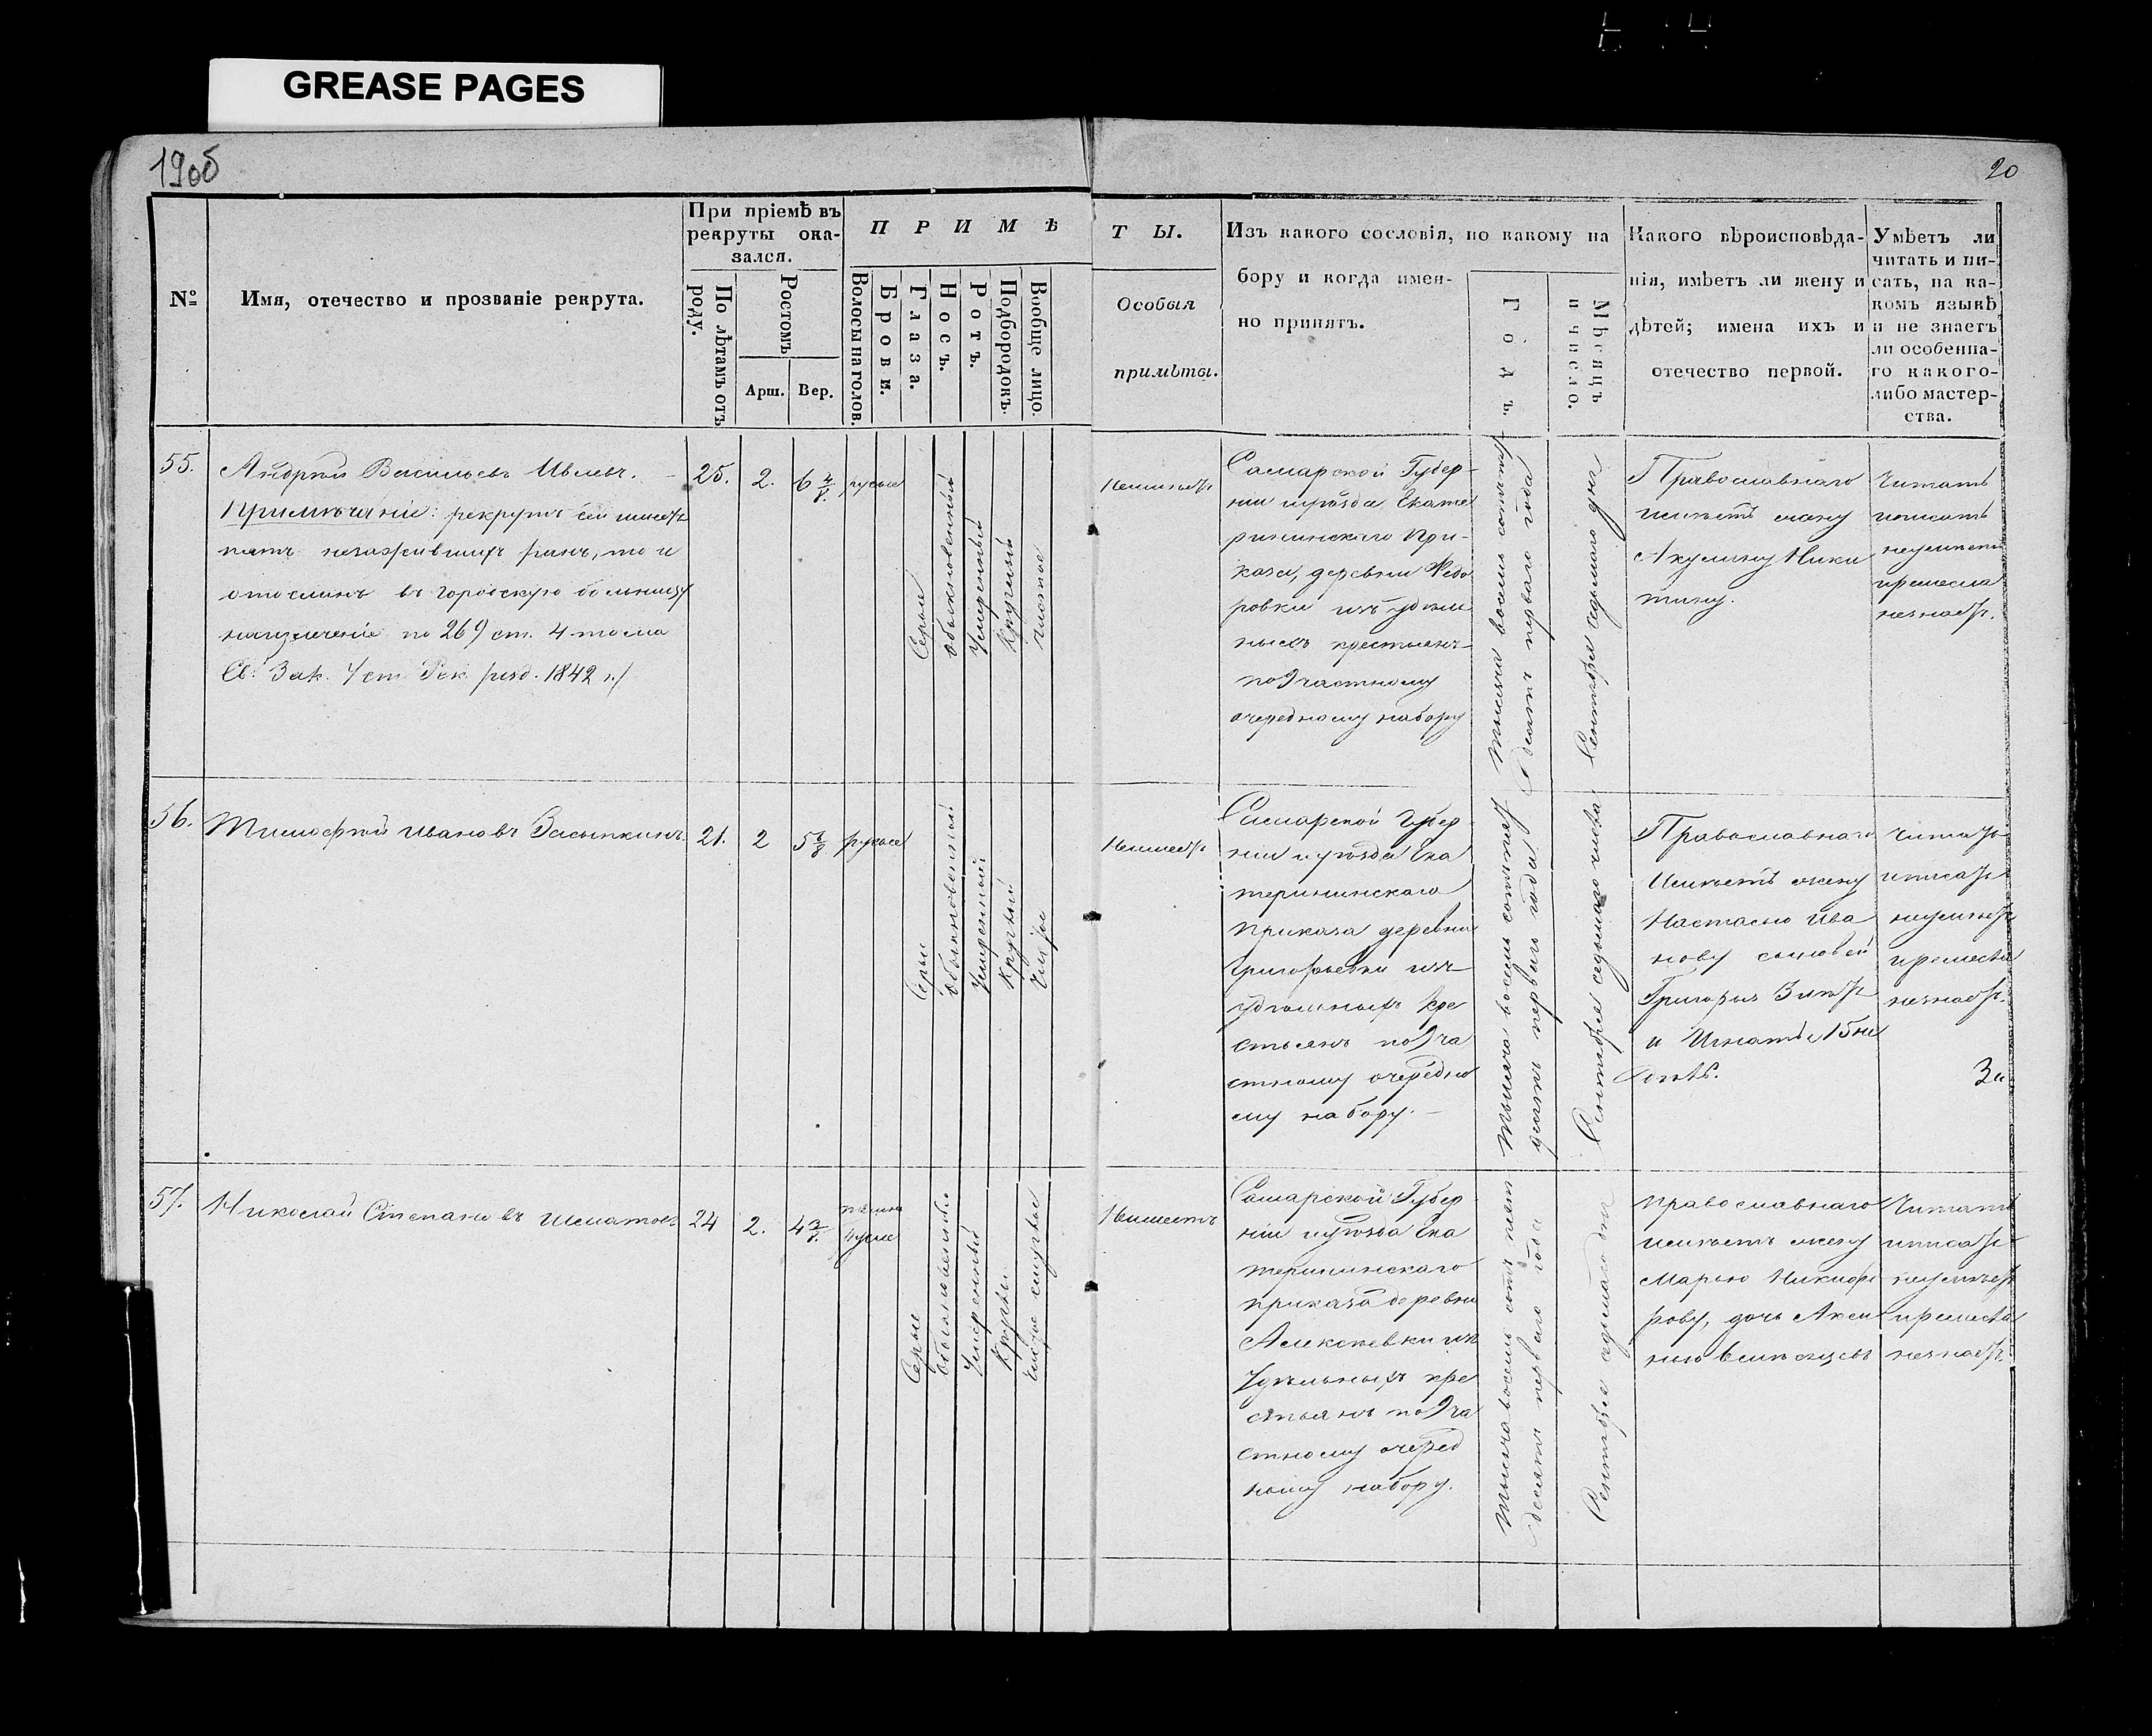 GREASE PAGES
19об
20
№
Имя, отечество и прозваніе рекрута.
При пріемѣ въ
рекруты ока-
зался.
По лѣтамъ отъ
роду.
Ростомъ
Арш.
Вер.
ПРИМѢ
Волосы на голов.
Брови.
Глаза.
Носъ.
Ротъ.
Подбородокъ.
Вообще лицо.
ТЫ.
Особыя
примѣты.
Изъ какого сословія, по какому на
бору и когда имен-
но принятъ.
Годъ.
Мѣсяцъ
и число.
Какого вѣроисповѣда-
нія, имѣетъ ли жену и
дѣтей; имена ихъ и
отечество первой.
Умѣетъ ли
читать и пи-
сать, на ка-
комъ языкѣ
и не знаетъ
ли особенна-
го какого-
либо мастер-
ства.
55.
Андрей Васильевъ Ивлевъ.
Примѣчаніе: рекрутъ сей имѣетъ
пять незажившихъ ранъ, то и
отосланъ въ городскую больницу
на излеченіе по 269 ст. 4 тома
Св. Зак. Уст. Рек. изд. 1842 г./
25.
2.
6 4/8.
русые
Серые
Обыкновенный
Умеренный
Круглый
чистое
Неимеетъ
Самарской Губер-
ніи и уѣзда Екате
рининскаго При-
каза, деревни Ѳедо
ровки изъ удѣль
ныхъ крестьянъ
по 9 частному
очередному набору
Тысяча восемь сотъ пять
десятъ перваго года
Сентября седьмаго дня
Православнаго
имѣетъ жену
Акулину Ники
тину.
Читать
и писать
неумѣетъ
и ремесла
незнаетъ.
56.
Тимофей Ивановъ Засыпкинъ.
21.
2
5 6/8
русые
Серые
Обыкновенный
Умеренный
Круглый
Чистое
Неимеетъ
Самарской Губер
ніи и уѣзда Ека
терининскаго
приказа деревни
Григорьевки изъ
удѣльныхъ кре
стьянъ по 9 ча
стному очередно
му набору.
Тысяча восемь сотъ пять
десятъ перваго года
Сентября седьмаго числа
Православнаго
Имѣетъ жену
Настасью Ива
нову сыновей
Григорья 3 лѣтъ
и Игнатья 15 не
дѣль.
Читать
и писать
неумѣетъ
и ремесла
незнаетъ.
57.
Николай Степановъ
24
2.
4
русые
Серые
Обыкновенный
Умеренный
Круглый
чистое смуглое
Неимеетъ
Самарской Губер
ніи и уѣзда Ека
терининскаго
приказа деревни
Алексѣевки изъ
Удѣльныхъ кре
стьянъ по 9 ча
стному очеред
ному набору.
Тысяча восемь сотъ пять
десятъ перваго года
Сентября седьмаго дня
Православнаго
имѣетъ жену
Марью Никифо
рову, дочь Аксе
нію 6 мѣсяцевъ
Читать
и писать
неумѣетъ
и ремесла
незнаетъ.